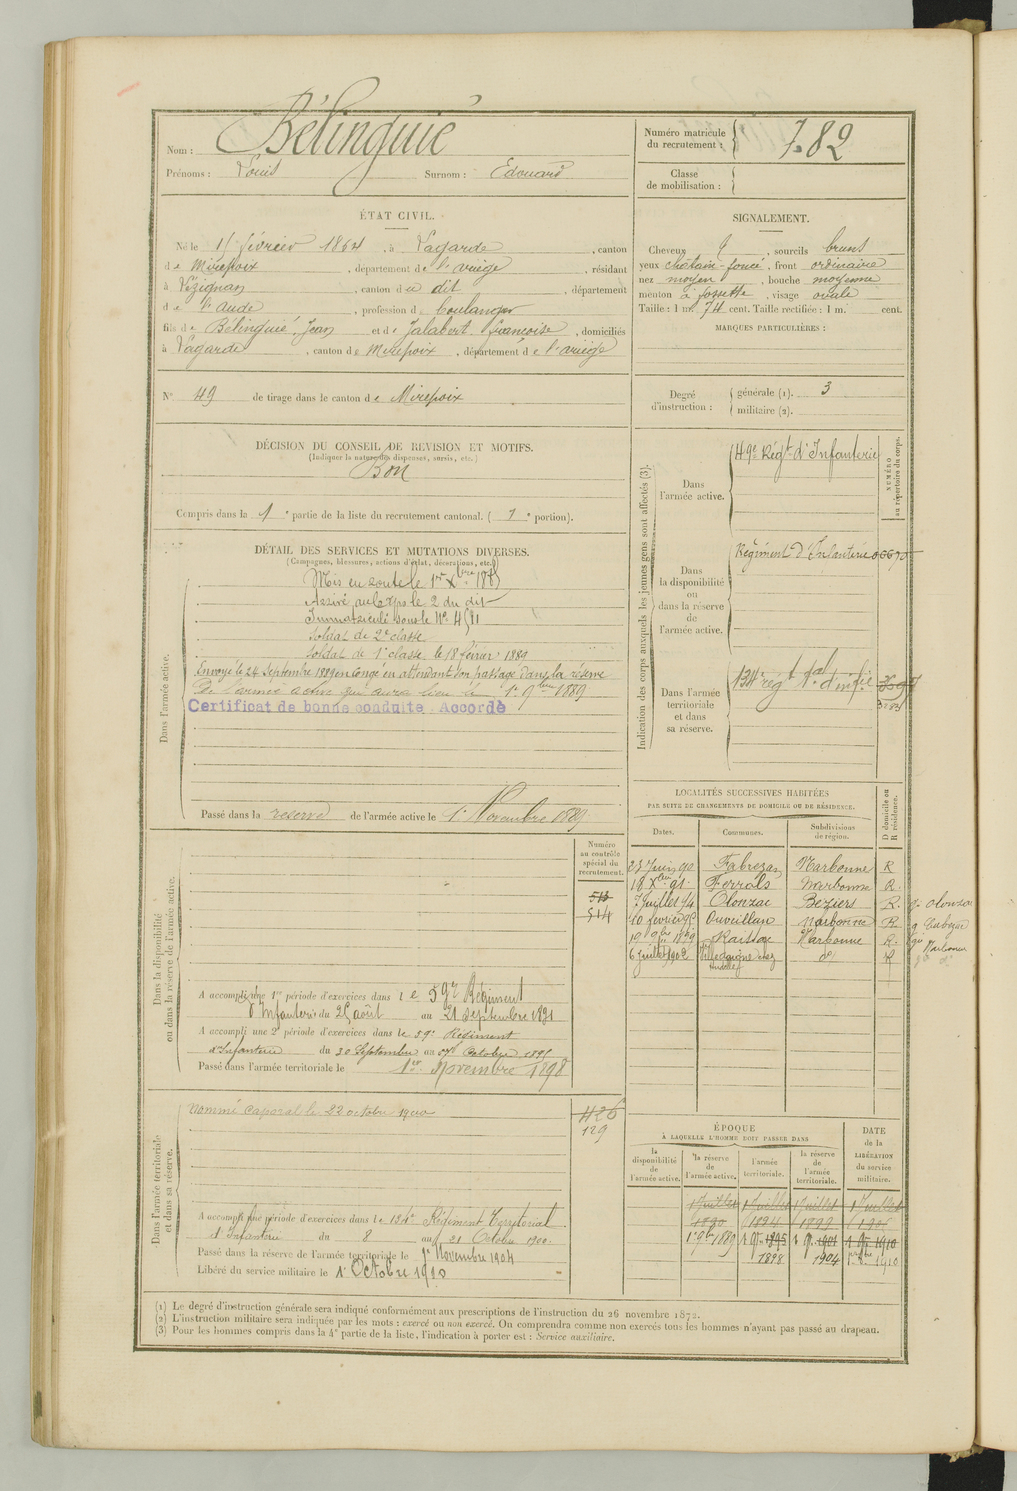 Nom : Bélinguié
Prénoms : Louis Surnom : Edouard
Numéro matricule du recrutement : 782
Classe de mobilisation :
ÉTAT CIVIL.
Né le 15 février 1864, à Lagarde, canton
de Mirepoix, département de l'ariège, résidant
à Lézignan, canton du dit, département
de l'aude, profession de boulanger
fils de Bélinguié Jean et de Jalabert françoise, domiciliés
à Lagarde, canton de Mirepoix, département de l'ariège
N° 49 de tirage dans le canton de Mirepoix
DÉCISION DU CONSEIL DE REVISION ET MOTIFS.
(Indiquer la nature des dispenses, sursis, etc.)
Bon
Compris dans la 1e partie de la liste du recrutement cantonal. (1e portion).
SIGNALEMENT.
Cheveux &, sourcils bruns
yeux chatain-foncé, front ordinaire
nez moyen, bouche moyenne
menton à fossette, visage ovale
Taille : 1 m. 74 cent. Taille rectifiée : 1 m. cent.
MARQUES PARTICULIÈRES :
Degré d'instruction : générale (1). 3
militaire (2).
DÉTAIL DES SERVICES ET MUTATIONS DIVERSES.
(Campagnes, blessures, actions d'éclat, décorations, etc.)
Dans l'armée active.
Mis en route le 1er Xbre 188
Arrivé au Corps le 2 du dit
Immatriculé sous le N° 4581
Soldat de 2e classe
Soldat de 1e classe le 18 février 1889
Envoyé le 24 Septembre 1889 en congé en attendant son passage dans la réserve
De l'armée active qui aura lieu le 1er 9bre 1889
Certificat de bonne conduite Accordé
Passé dans la réserve de l'armée active le 1er Novembre 1889
Indication des corps auxquels les jeunes gens sont affectés (3).
NUMÉRO au répertoire du corps.
Dans l'armée active.
49e Régt d'Infanterie
Dans la disponibilité ou dans la réserve de l'armée active.
Régiment d'Infanterie
Dans l'armée territoriale et dans sa réserve.
134e régt tal d'inf.ie
LOCALITÉS SUCCESSIVES HABITÉES
PAR SUITE DE CHANGEMENTS DE DOMICILE OU DE RÉSIDENCE.
Dates. Communes. Subdivisions de région. D domicile ou R résidence.
23 Juin 90 Fabrezan Narbonne R
18 Xbre 91 Ferrals Narbonne R.
7 Juillet 94 Olonzac Beziers R.
10 février 95 Ouveillan Narbonne R
19 9bre 1899 Raissac Narbonne R.
6 juillet 1902 Villedaigne do R
Dans la disponibilité ou dans la réserve de l'armée active.
Numéro au contrôle spécial du recrutement.
513
514
A accompli une 1re période d'exercices dans le 59e Régiment
d'Infanterie du 25 août au 21 septembre 1891
A accompli une 2e période d'exercices dans le 59e Régiment
d'Infanterie du 30 Septembre au 27 Octobre 1895
Passé dans l'armée territoriale le 1er Novembre 1898
Dans l'armée territoriale et dans sa réserve.
Nommé Caporal le 22 octobre 1900
426
129
A accompli une période d'exercices dans le 134e Régiment Territorial
d'Infanterie du 8 au 21 Octobre 1900
Passé dans la réserve de l'armée territoriale le 1er Novembre 1904
Libéré du service militaire le 1er Octobre 1910
ÉPOQUE
À LAQUELLE L'HOMME DOIT PASSER DANS
DATE de la LIBÉRATION du service militaire.
la disponibilité de l'armée active. la réserve de l'armée active. l'armée territoriale. la réserve de l'armée territoriale.
1 Juillet 1 Juillet 1 Juillet 1 Juillet
1890 1894 1899
1er 9bre 1889 1 9bre 1895 1 9. 1901 1 9bre 1910
1898 1904 1910
(1) Le degré d'instruction générale sera indiqué conformément aux prescriptions de l'instruction du 26 novembre 1872.
(2) L'instruction militaire sera indiquée par les mots : exercé ou non exercé. On comprendra comme non exercés tous les hommes n'ayant pas passé au drapeau.
(3) Pour les hommes compris dans la 4e partie de la liste, l'indication à porter est : Service auxiliaire.